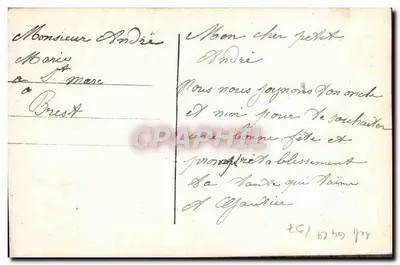 Monsieur André
Marie
a St marc
a
Brest
Mon cher petit
André
Nous nous joignons ton oncle
et moi pour te souhaiter
une bonne fête et
prompt rétablissement
Ta tante qui t'aime
A Gautier
CPAPHIL